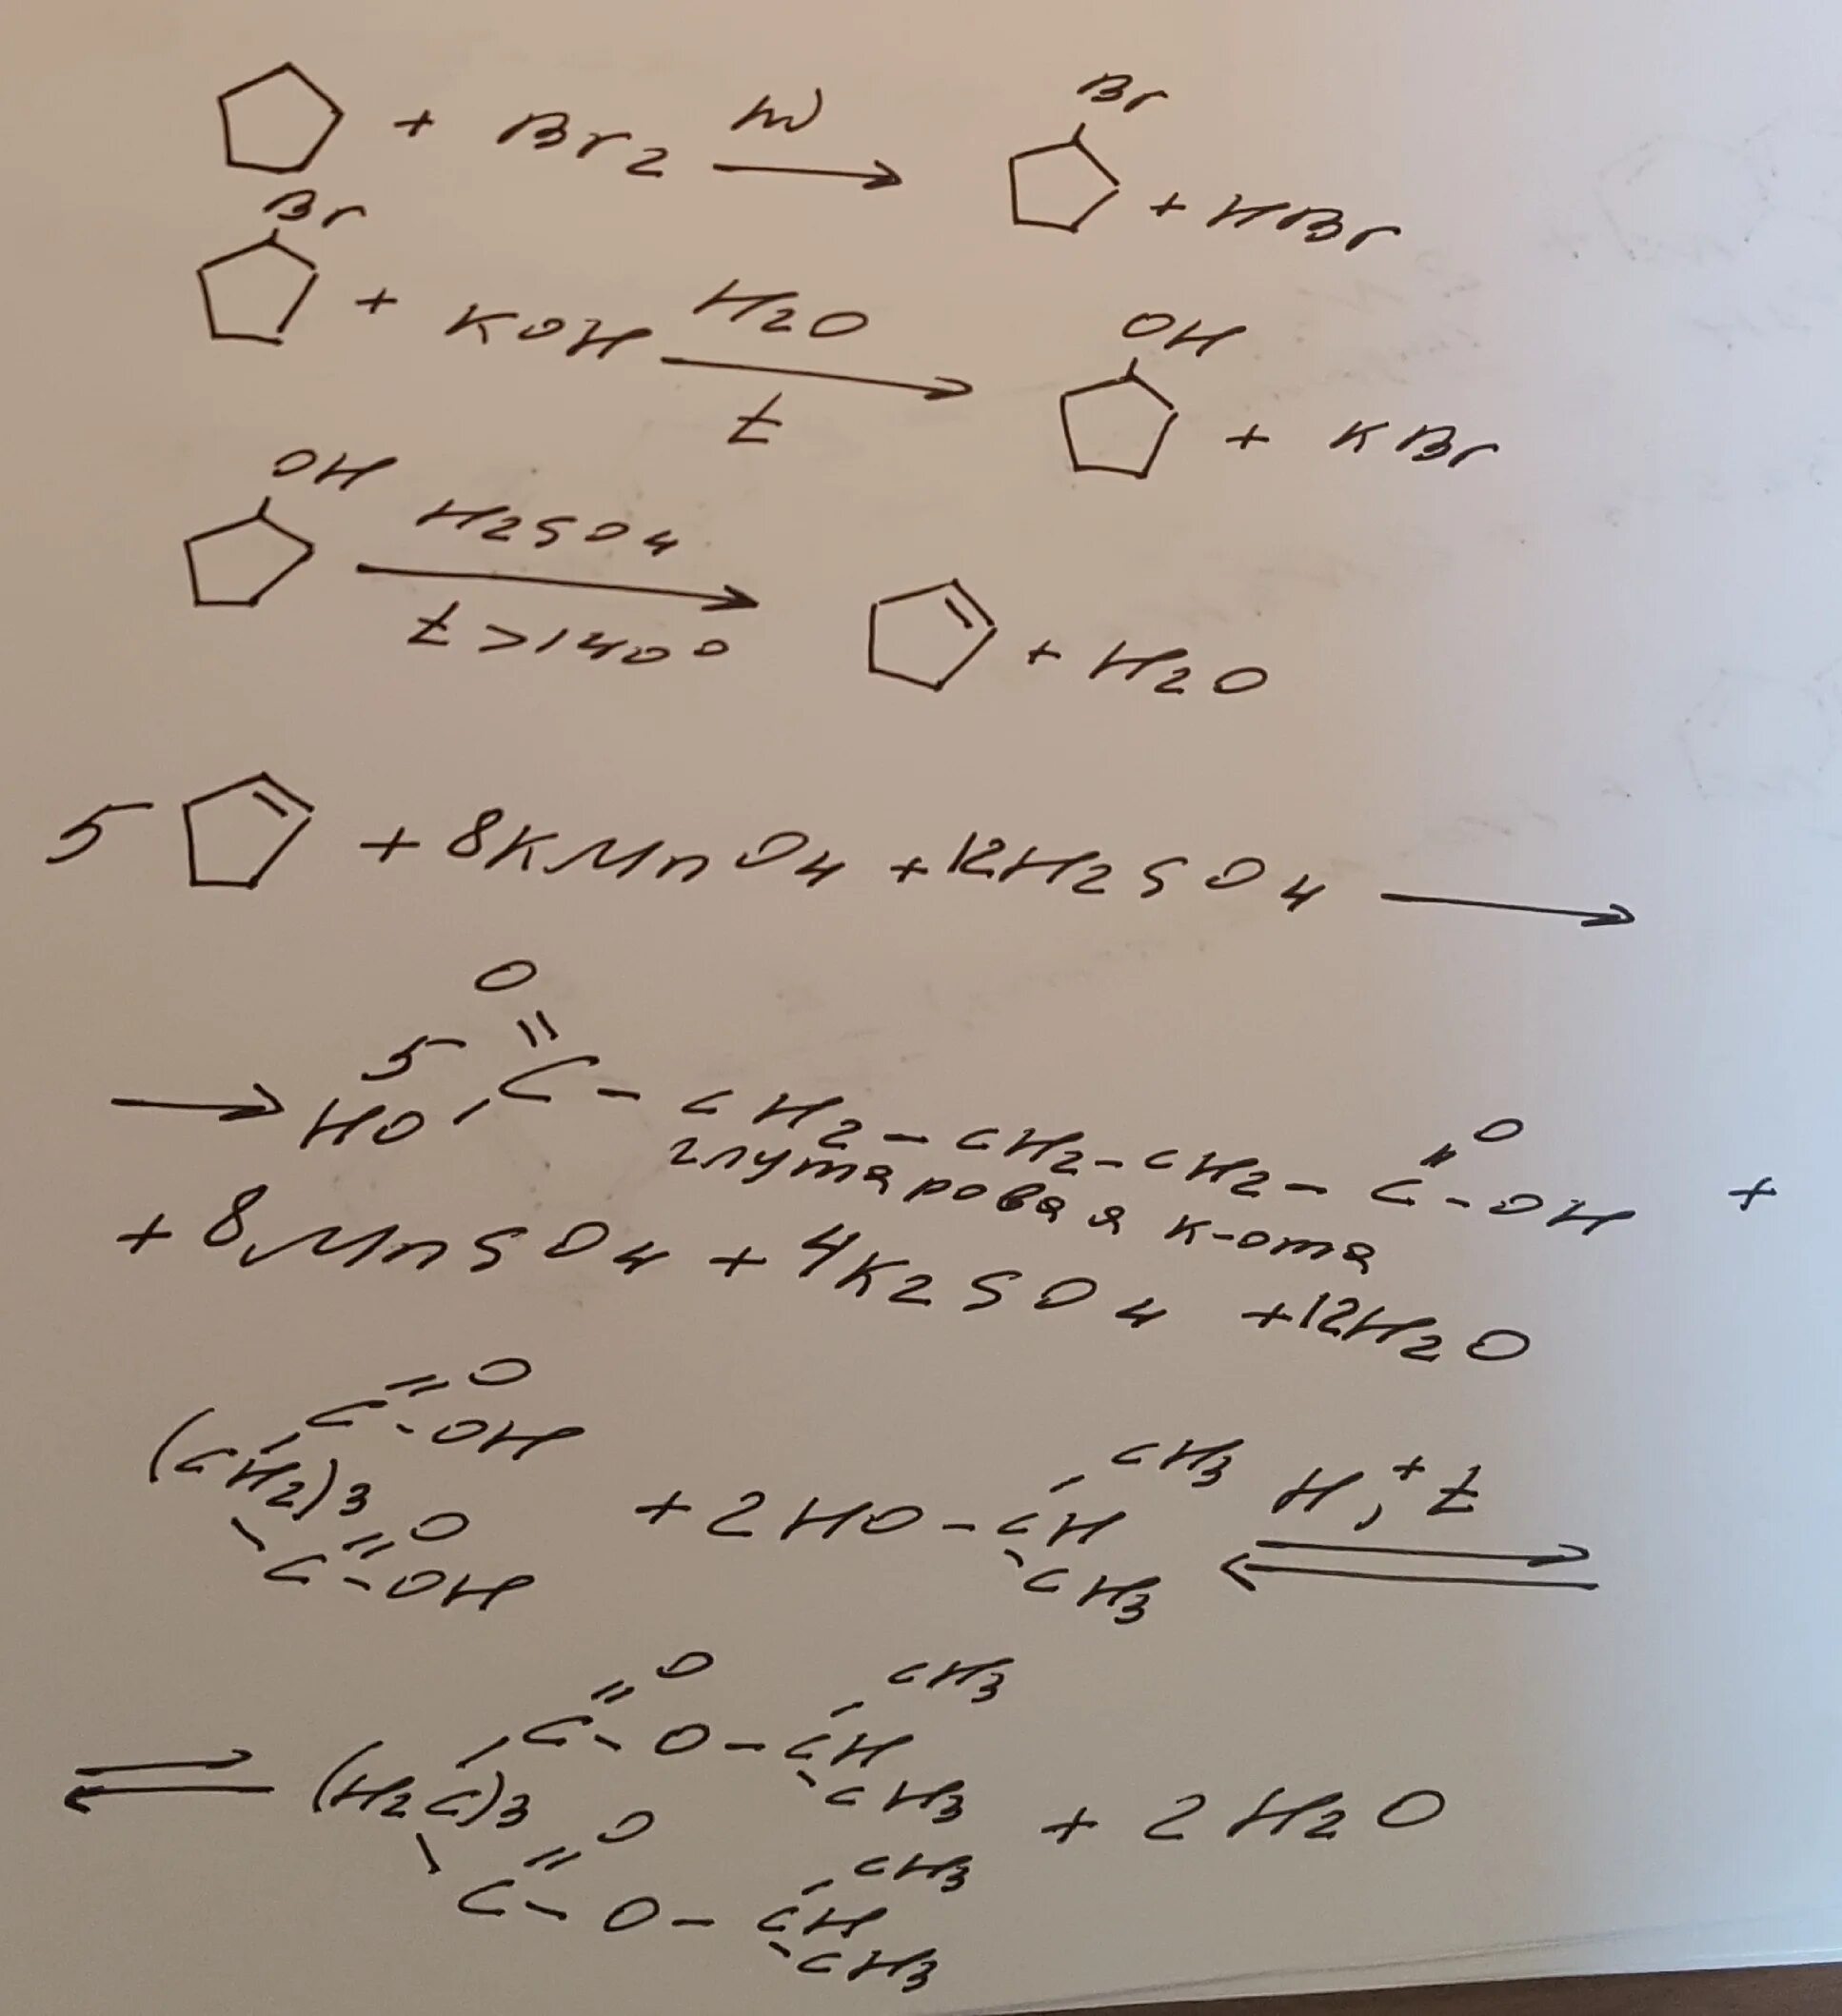 Br
+ Br2 hν + HBr
Br
+ KOH H2O t OH + KBr
OH
H2SO4 t > 140° + H2O
5 + 8KMnO4 + 12H2SO4
5 HO-C(=O)-CH2-CH2-CH2-C(=O)-OH +
глутаровая к-ота
+ 8MnSO4 + 4K2SO4 + 12H2O
(CH2)3 C=O -OH C=O -OH + 2HO-CH-CH3 -CH3 H+, t
(H2C)3 C=O -O-CH-CH3 -CH3 C=O -O-CH-CH3 -CH3 + 2H2O